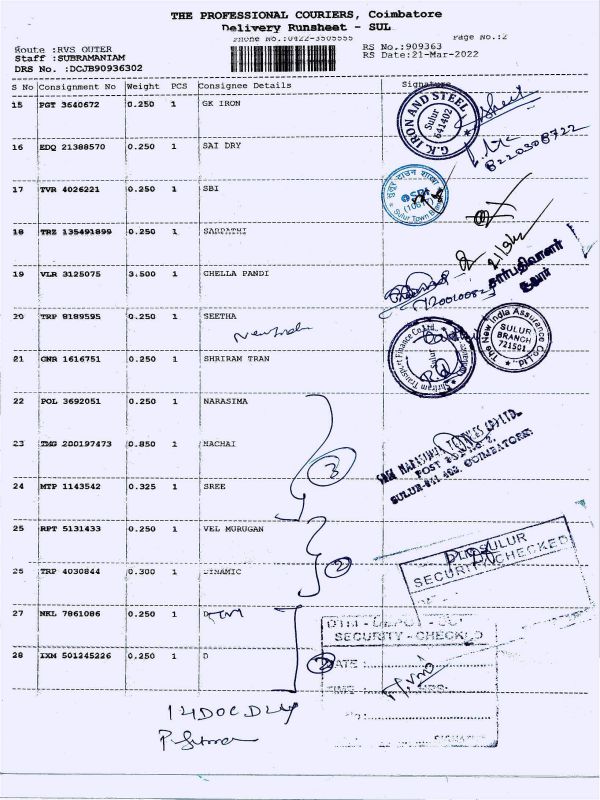 THE PROFESSIONAL COURIERS, Coimbatore
Delivery Runsheet - SUL
Phone No.:0422-3505555
Page No.:2
Route :RVS OUTER
RS No.:909363
Staff :SUBRAMANIAM
RS Date:21-Mar-2022
DRS No. :DCJB90936302
S No Consignment No Weight PCS Consignee Details Signature
15 PGT 3640672 0.250 1 GK IRON
G.K. IRON AND STEEL
Sulur
641402
8220308722
16 EDQ 21388570 0.250 1 SAI DRY
17 TVR 4026221 0.250 1 SBI
SBI
Sulur Town Branch
18 TRZ 135491899 0.250 1 SARPATHI
19 VLR 3125075 3.500 1 CHELLA PANDI
சூலூர்
20 TRP 8189595 0.250 1 SEETHA
New India
The New India Assurance Co. Ltd.
SULUR
BRANCH
721501
21 GNR 1616751 0.250 1 SHRIRAM TRAN
Shriram Transport Finance Co. Ltd.,
Sulur
22 POL 3692051 0.250 1 NARASIMA
23 TMG 200197473 0.850 1 MACHAI
3
SULUR-641 402, COIMBATORE
24 MTP 1143542 0.325 1 SREE
25 RPT 5131433 0.250 1 VEL MURUGAN
SULUR
SECURITY CHECKED
26 TRP 4030844 0.300 1 DYNAMIC
2
27 NKL 7861086 0.250 1 D
SECURITY - CHECKED
28 IXM 501245226 0.250 1 D
2
DATE :
TIME : HRS.
SIGNATURE
14 DOC DLY